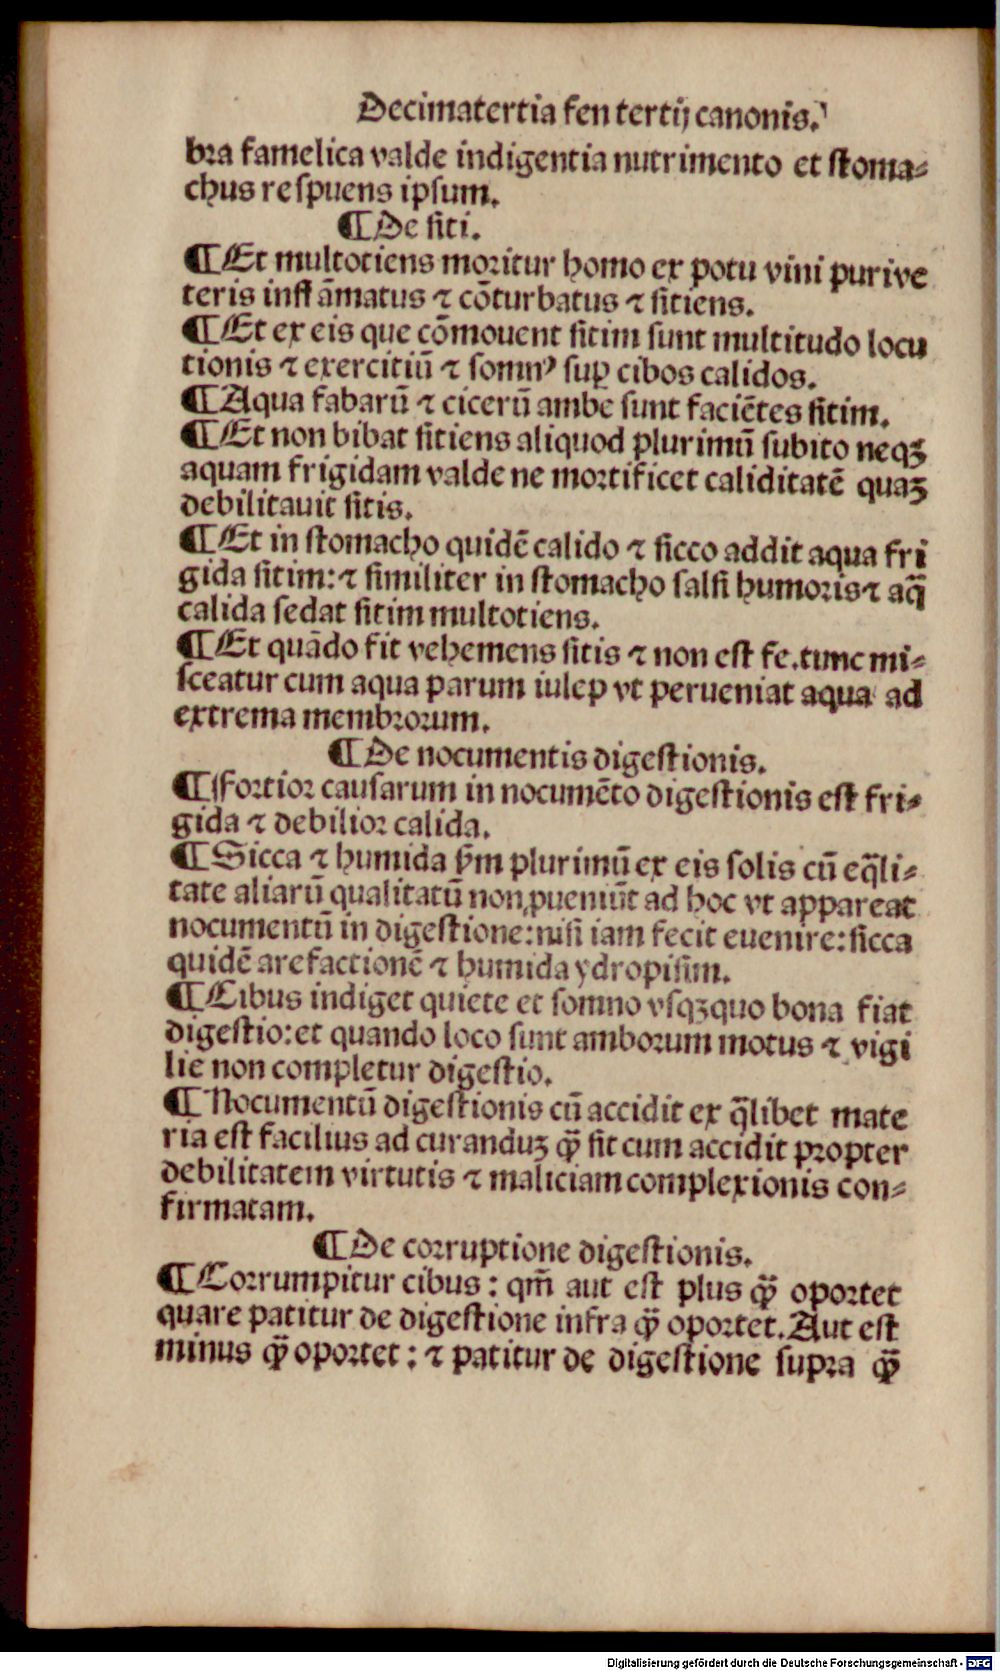 Decimatertia fen tertij canonis.
bra famelica valde indigentia nutrimento et stoma-
chus respuens ipsum.
¶ De siti.
¶ Et multotiens moritur homo ex potu vini puri ve
teris inflāmatus ⁊ cōturbatus ⁊ sitiens.
¶ Et ex eis que cōmouent sitim sunt multitudo locu
tionis ⁊ exercitiū ⁊ somnꝰ suꝑ cibos calidos.
¶ Aqua fabarū ⁊ cicerū ambe sunt faciētes sitim.
¶ Et non bibat sitiens aliquod plurimū subito neqꝫ
aquam frigidam valde ne mortificet caliditatē quaꝫ
debilitauit sitis.
¶ Et in stomacho quidē calido ⁊ sicco addit aqua fri
gida sitim: ⁊ similiter in stomacho salsi humoris ⁊ aq̄
calida sedat sitim multotiens.
¶ Et quādo fit vehemens sitis ⁊ non est fe. tunc mi-
sceatur cum aqua parum iulep vt perueniat aqua ad
extrema membrorum.
¶ De nocumentis digestionis.
¶ Fortior causarum in nocumēto digestionis est fri-
gida ⁊ debilior calida.
¶ Sicca ⁊ humida ẜm plurimū ex eis solis cū eq̄li-
tate aliarū qualitatū non ꝓueniūt ad hoc vt appareat
nocumentū in digestione: nisi iam fecit euenire: sicca
quidē arefactionē ⁊ humida ydropisim.
¶ Cibus indiget quiete et somno vsqꝫquo bona fiat
digestio: et quando loco sunt amborum motus ⁊ vigi
lie non completur digestio.
¶ Nocumentū digestionis cū accidit ex q̄libet mate
ria est facilius ad curanduꝫ ꝙ̄ sit cum accidit propter
debilitatem virtutis ⁊ maliciam complexionis con-
firmatam.
¶ De corruptione digestionis.
¶ Corrumpitur cibus: qm̄ aut est plus ꝙ̄ oportet
quare patitur de digestione infra ꝙ̄ oportet. Aut est
minus ꝙ̄ oportet: ⁊ patitur de digestione supra ꝙ̄
Digitalisierung gefördert durch die Deutsche Forschungsgemeinschaft - DFG